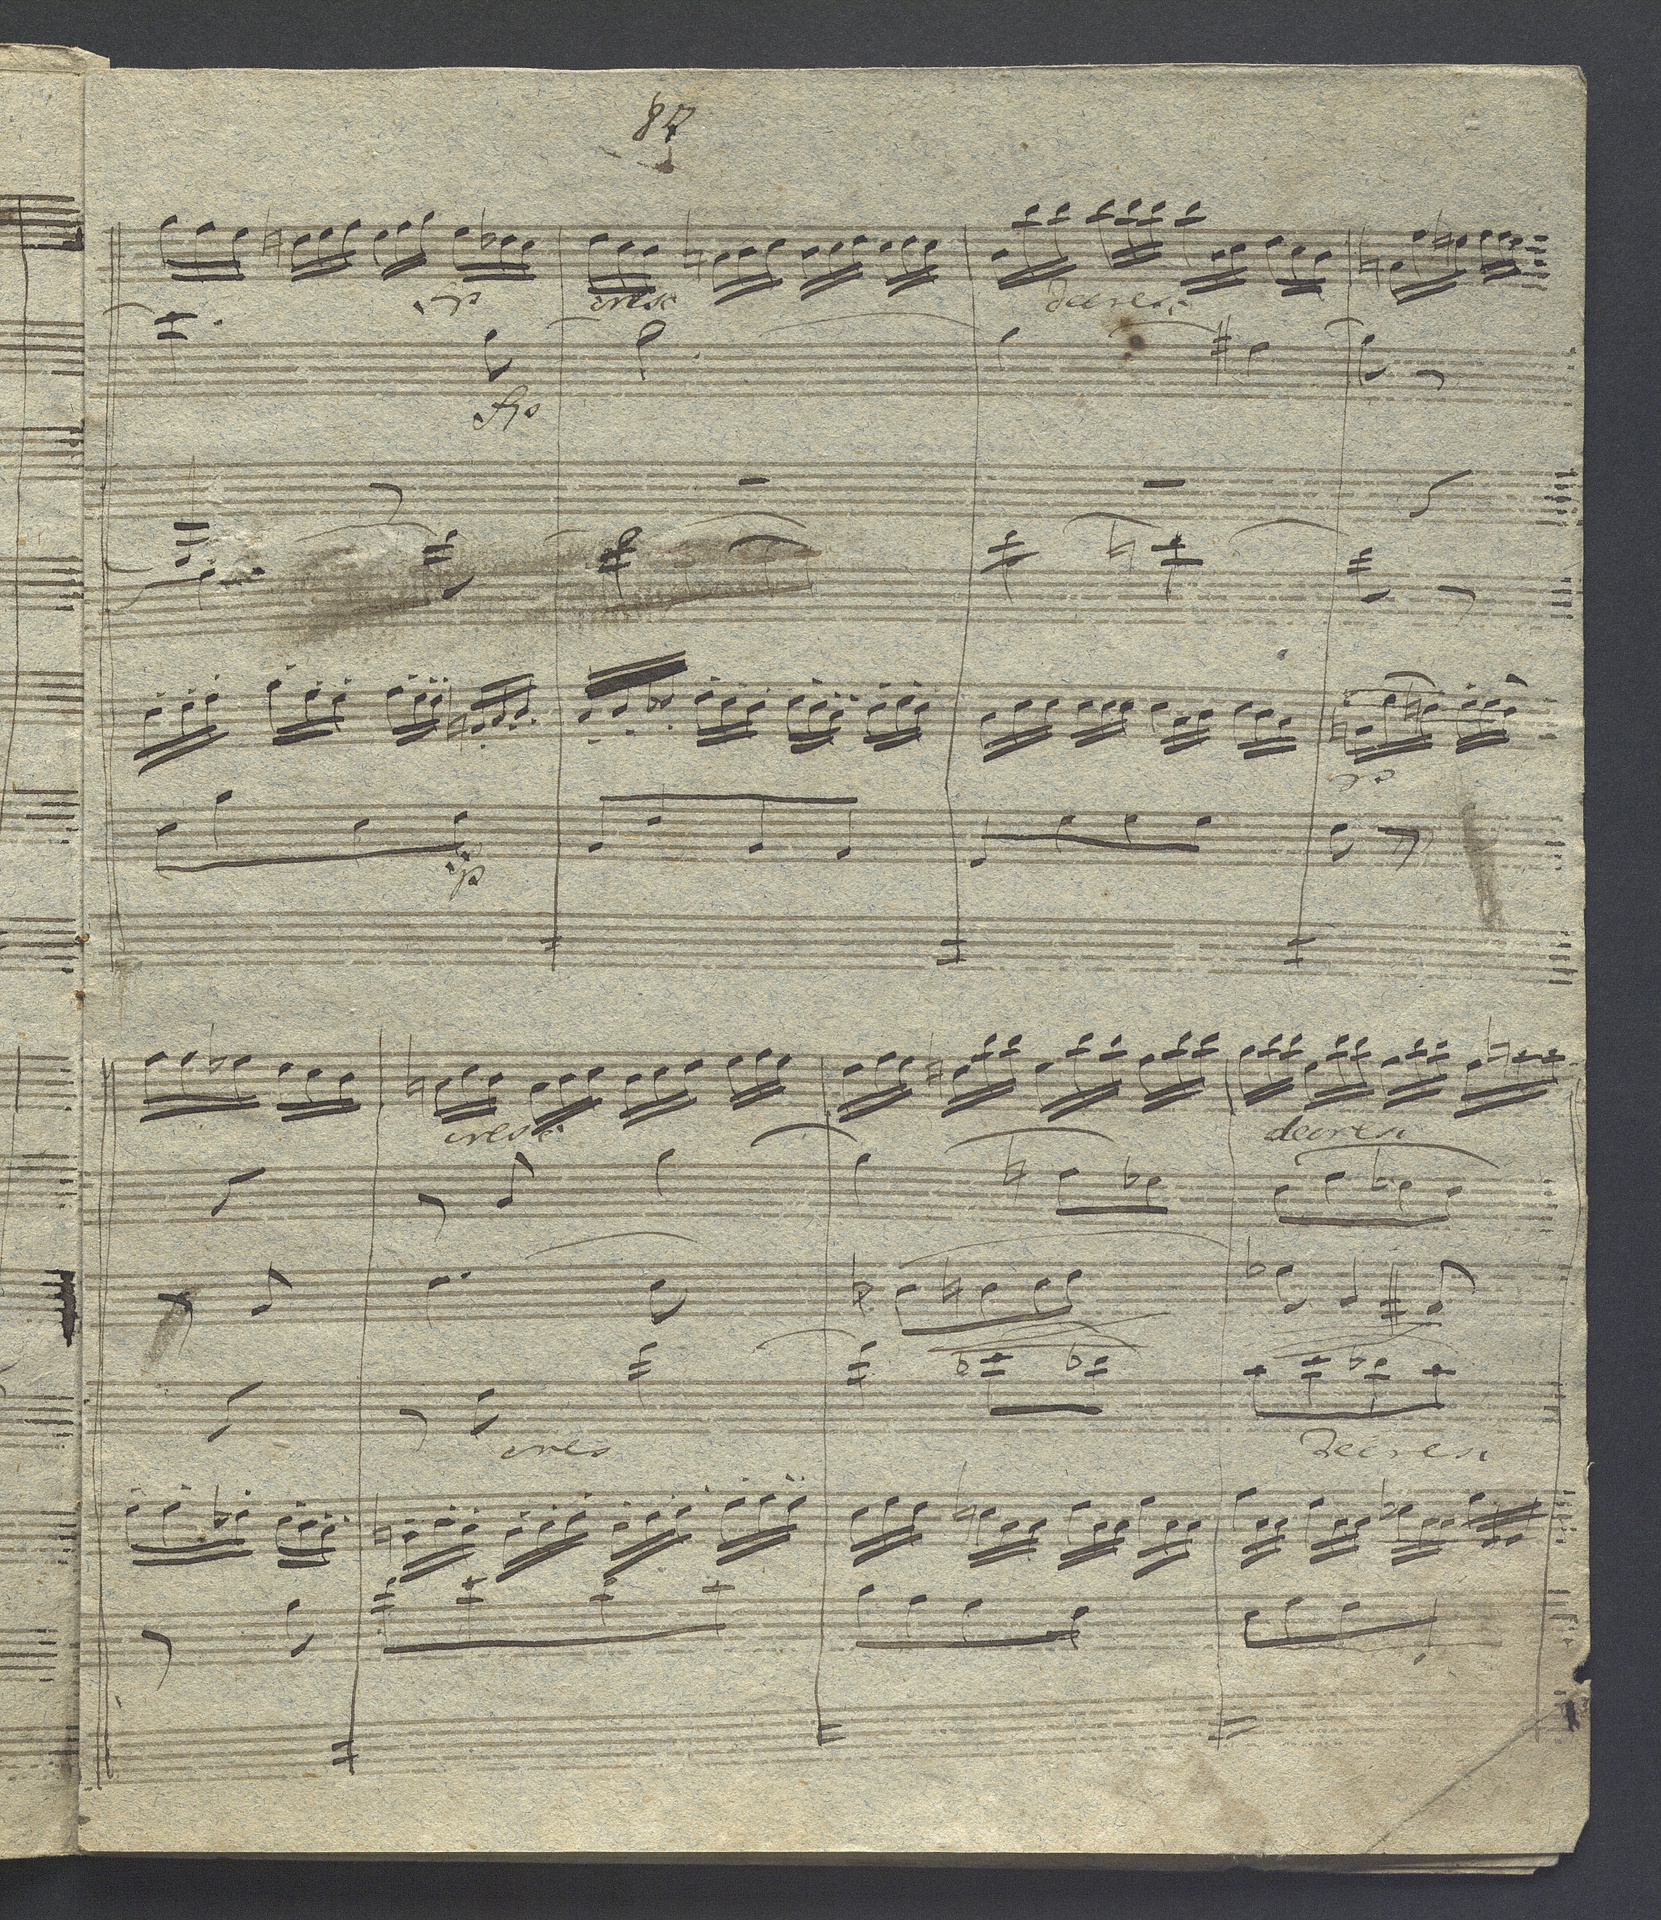 87
p cresc decresc
fp
p
p
cresc decresc
cres decresc